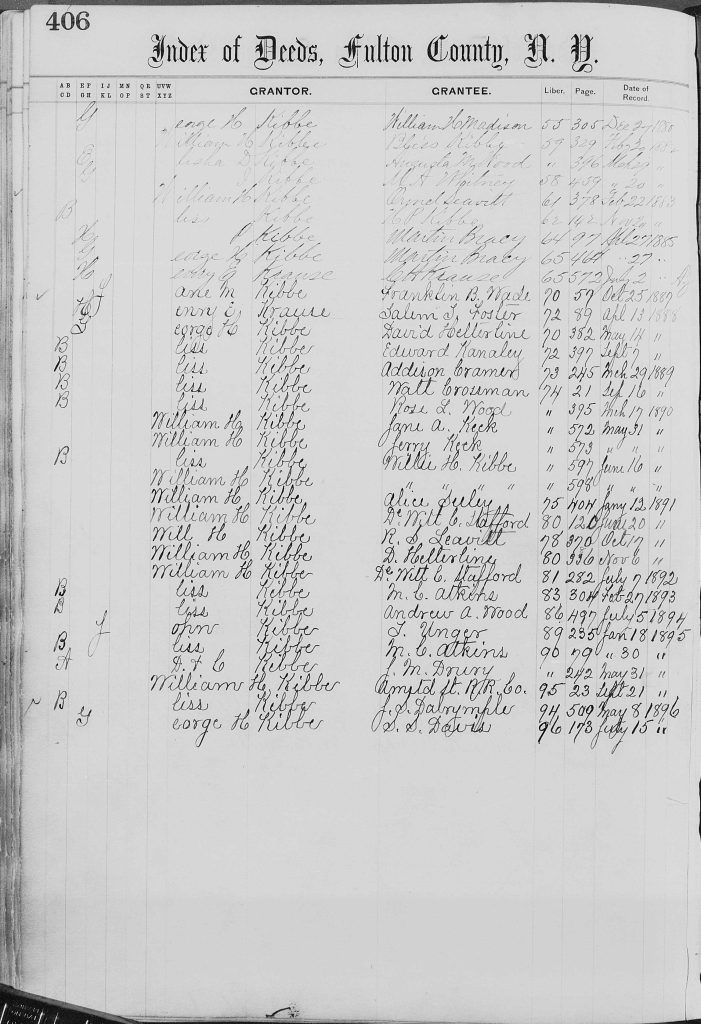 406
Index of Deeds, Fulton County, N. Y.
AB CD EF GH IJ KL MN OP QR ST UVW XYZ GRANTOR. GRANTEE. Liber. Page. Date of Record.
G eorge H Kibbe William H Madison 55 305 Dec 27
William H Kibbe Bliss Kibbe 59 509
E lisha D Kibbe Augusta Wood " 396
G Kibbe M. A. Whitney 58 459 " 20 "
William H Kibbe Orra Leavitt 61 378 Feb 22 1883
B liss Kibbe Kibbe 62 142
Kibbe Martin Bracy 64 97 Apl 27 1885
G eorge H Kibbe Martin Bracy 65 464 " 27 "
H Krause C H Krause 65 572 July 2 "
J ane M Kibbe Franklin B. Wade 70 59 Oct 25 1887
H enry E Krause Salem J. Foster 72 89 Apl 13 1888
G eorge H Kibbe David Helterline 70 382 May 14 "
B liss Kibbe Edward Kanaley 72 397 Sept 7 "
B liss Kibbe Addison Cramer 73 245 Mch 29 1889
B liss Kibbe Watt Crossman 74 21 Sep 16 "
B liss Kibbe Rose L. Wood " 395 Mch 17 1890
William H Kibbe Jane A. Keck " 572 May 31 "
William H Kibbe Jerry Keck " 573 " " "
B liss Kibbe Willie H. Kibbe " 597 June 16 "
William H Kibbe " " " " " 598 " " "
William H Kibbe Alice Seeley 75 404 Jany 12 1891
William H Kibbe De Witt C. Stafford 80 120 June 20 "
Will H Kibbe R. S. Leavitt 78 370 Oct 17 "
William H Kibbe D. Helterline 80 336 Nov 6 "
William H Kibbe De Witt C. Stafford 81 282 July 7 1892
B liss Kibbe M. C. Atkins 83 304 Feb 27 1893
B liss Kibbe Andrew A. Wood 86 497 July 5 1894
J ohn Kibbe L. Unger 89 235 Jan 18 1895
B liss Kibbe M. C. Atkins 90 79 " 30 "
A D. & C Kibbe J. M. Drury " 242 May 31 "
William H. Kibbe Amstd st. R.R. Co. 95 23 Sept 21 "
B liss Kibbe J. S. Dalrymple 94 509 May 8 1896
G eorge H Kibbe S. S. Davis 96 173 July 15 "